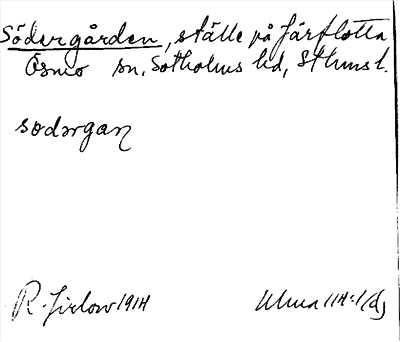 Södergården, ställe på Järflotta
Ösmo sn. Sotholms hd, Sthms l.
södərgan
R. Jirlow 1914
Ulma 114:1(d)